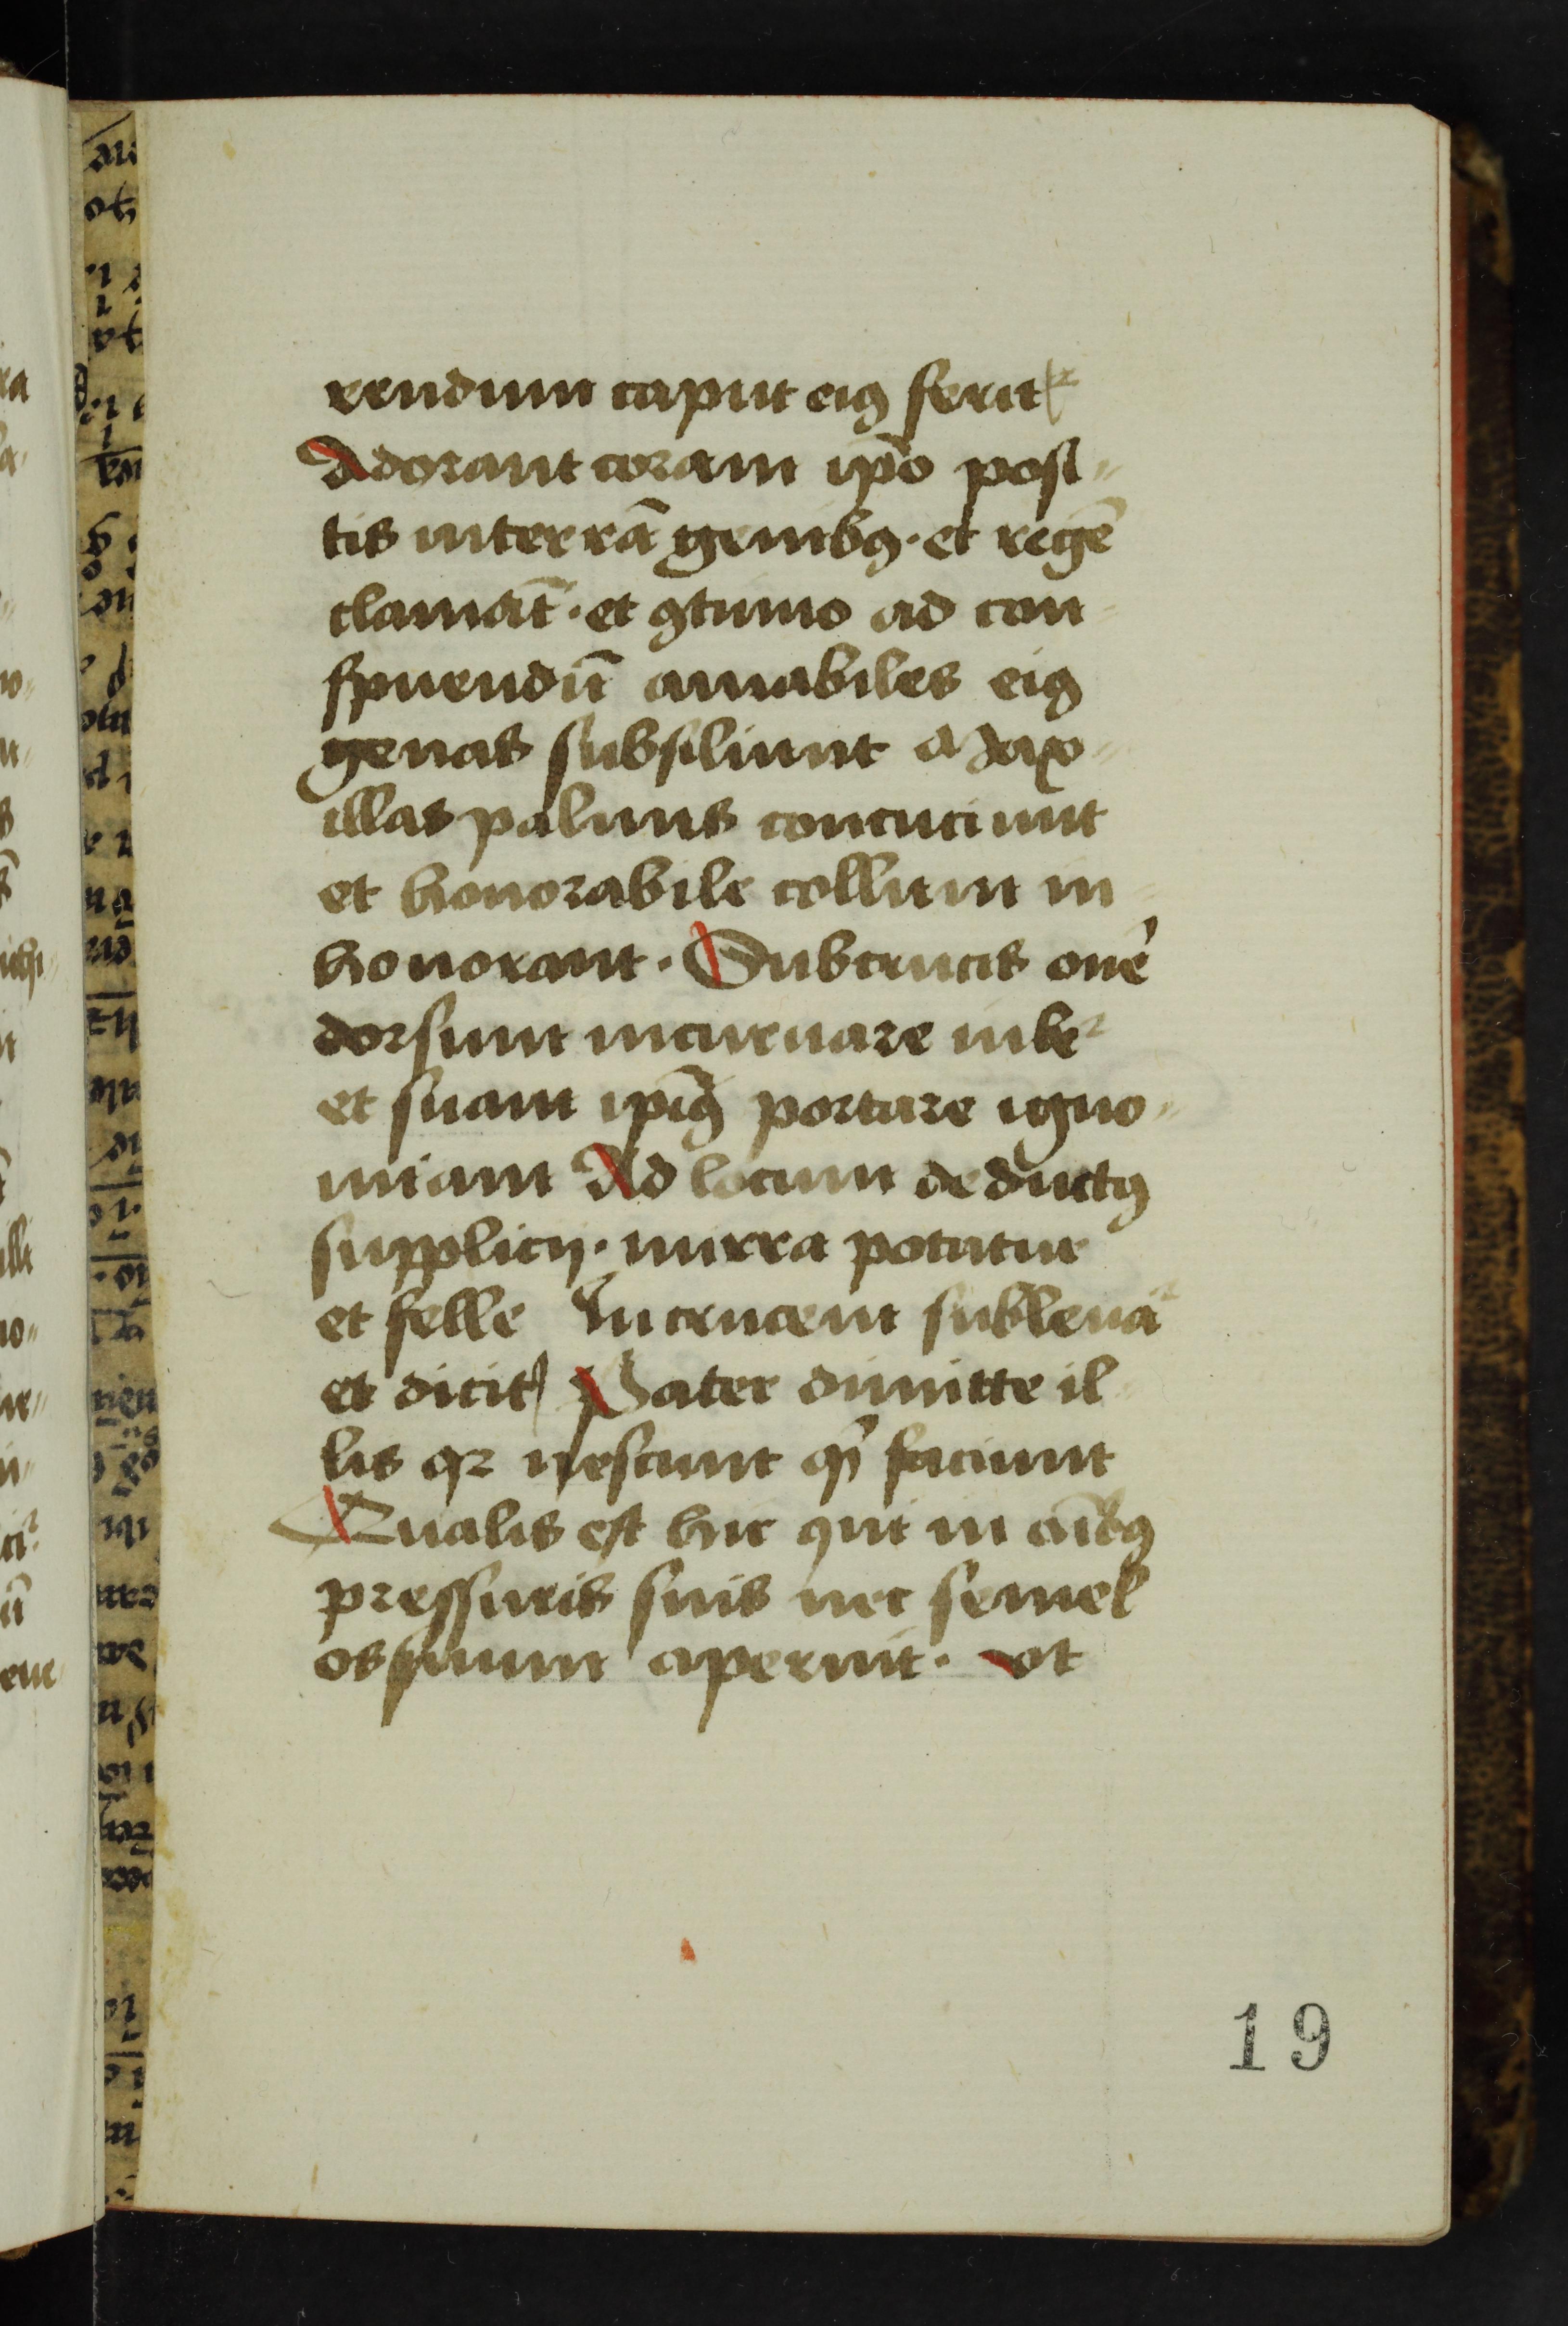 rendum caput eiꝰ ferit᷑
Adorant coram ip̄o posi-
tis in terrā genibꝰ· et regē
clamāt· et ꝯtinuo ad con-
spuendū amabiles eiꝰ
genas subsiliunt Max-
illas palmis concutiunt
et honorabile collum in-
honorant· Sub crucis onē
dorsum incuruare iubet᷑
et suam ip̄iꝰ portare igno-
miam Ad locum deductꝰ
supplicij· mirra potatur
et felle In crucem subleuat᷑
et dicit Pater dimitte il-
lis qꝛ nesciunt qͥ faciunt
Qualis est hic qui in oībꝰ
pressuris suis nec semel
os suum aperuit· vt
19